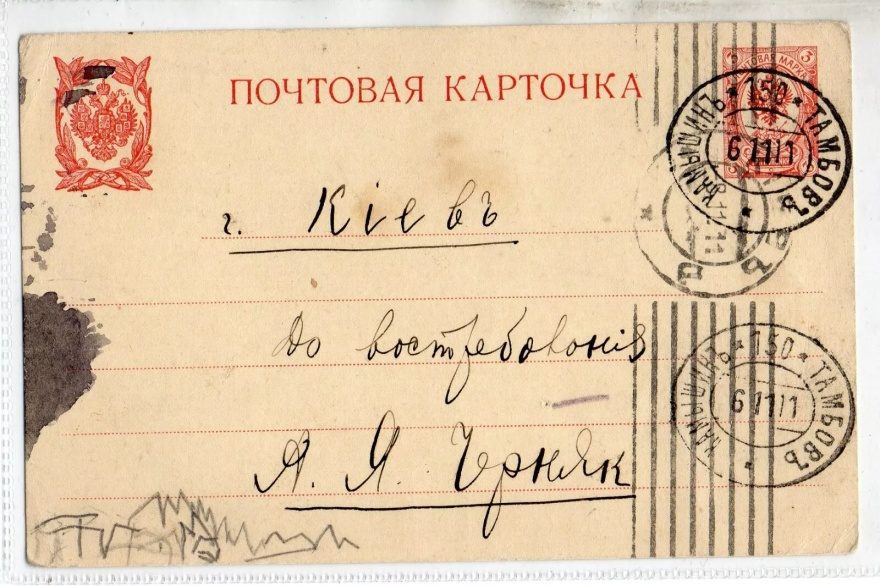 ПОЧТОВАЯ КАРТОЧКА
3
ПОЧТОВАЯ МАРКА
КАМЫШИНЪ * 150 * ТАМБОВЪ
6 11 11
г. Кіевъ
До востребованія
КАМЫШИНЪ * 150 * ТАМБОВЪ
6 11 11
А. Я. Черняк